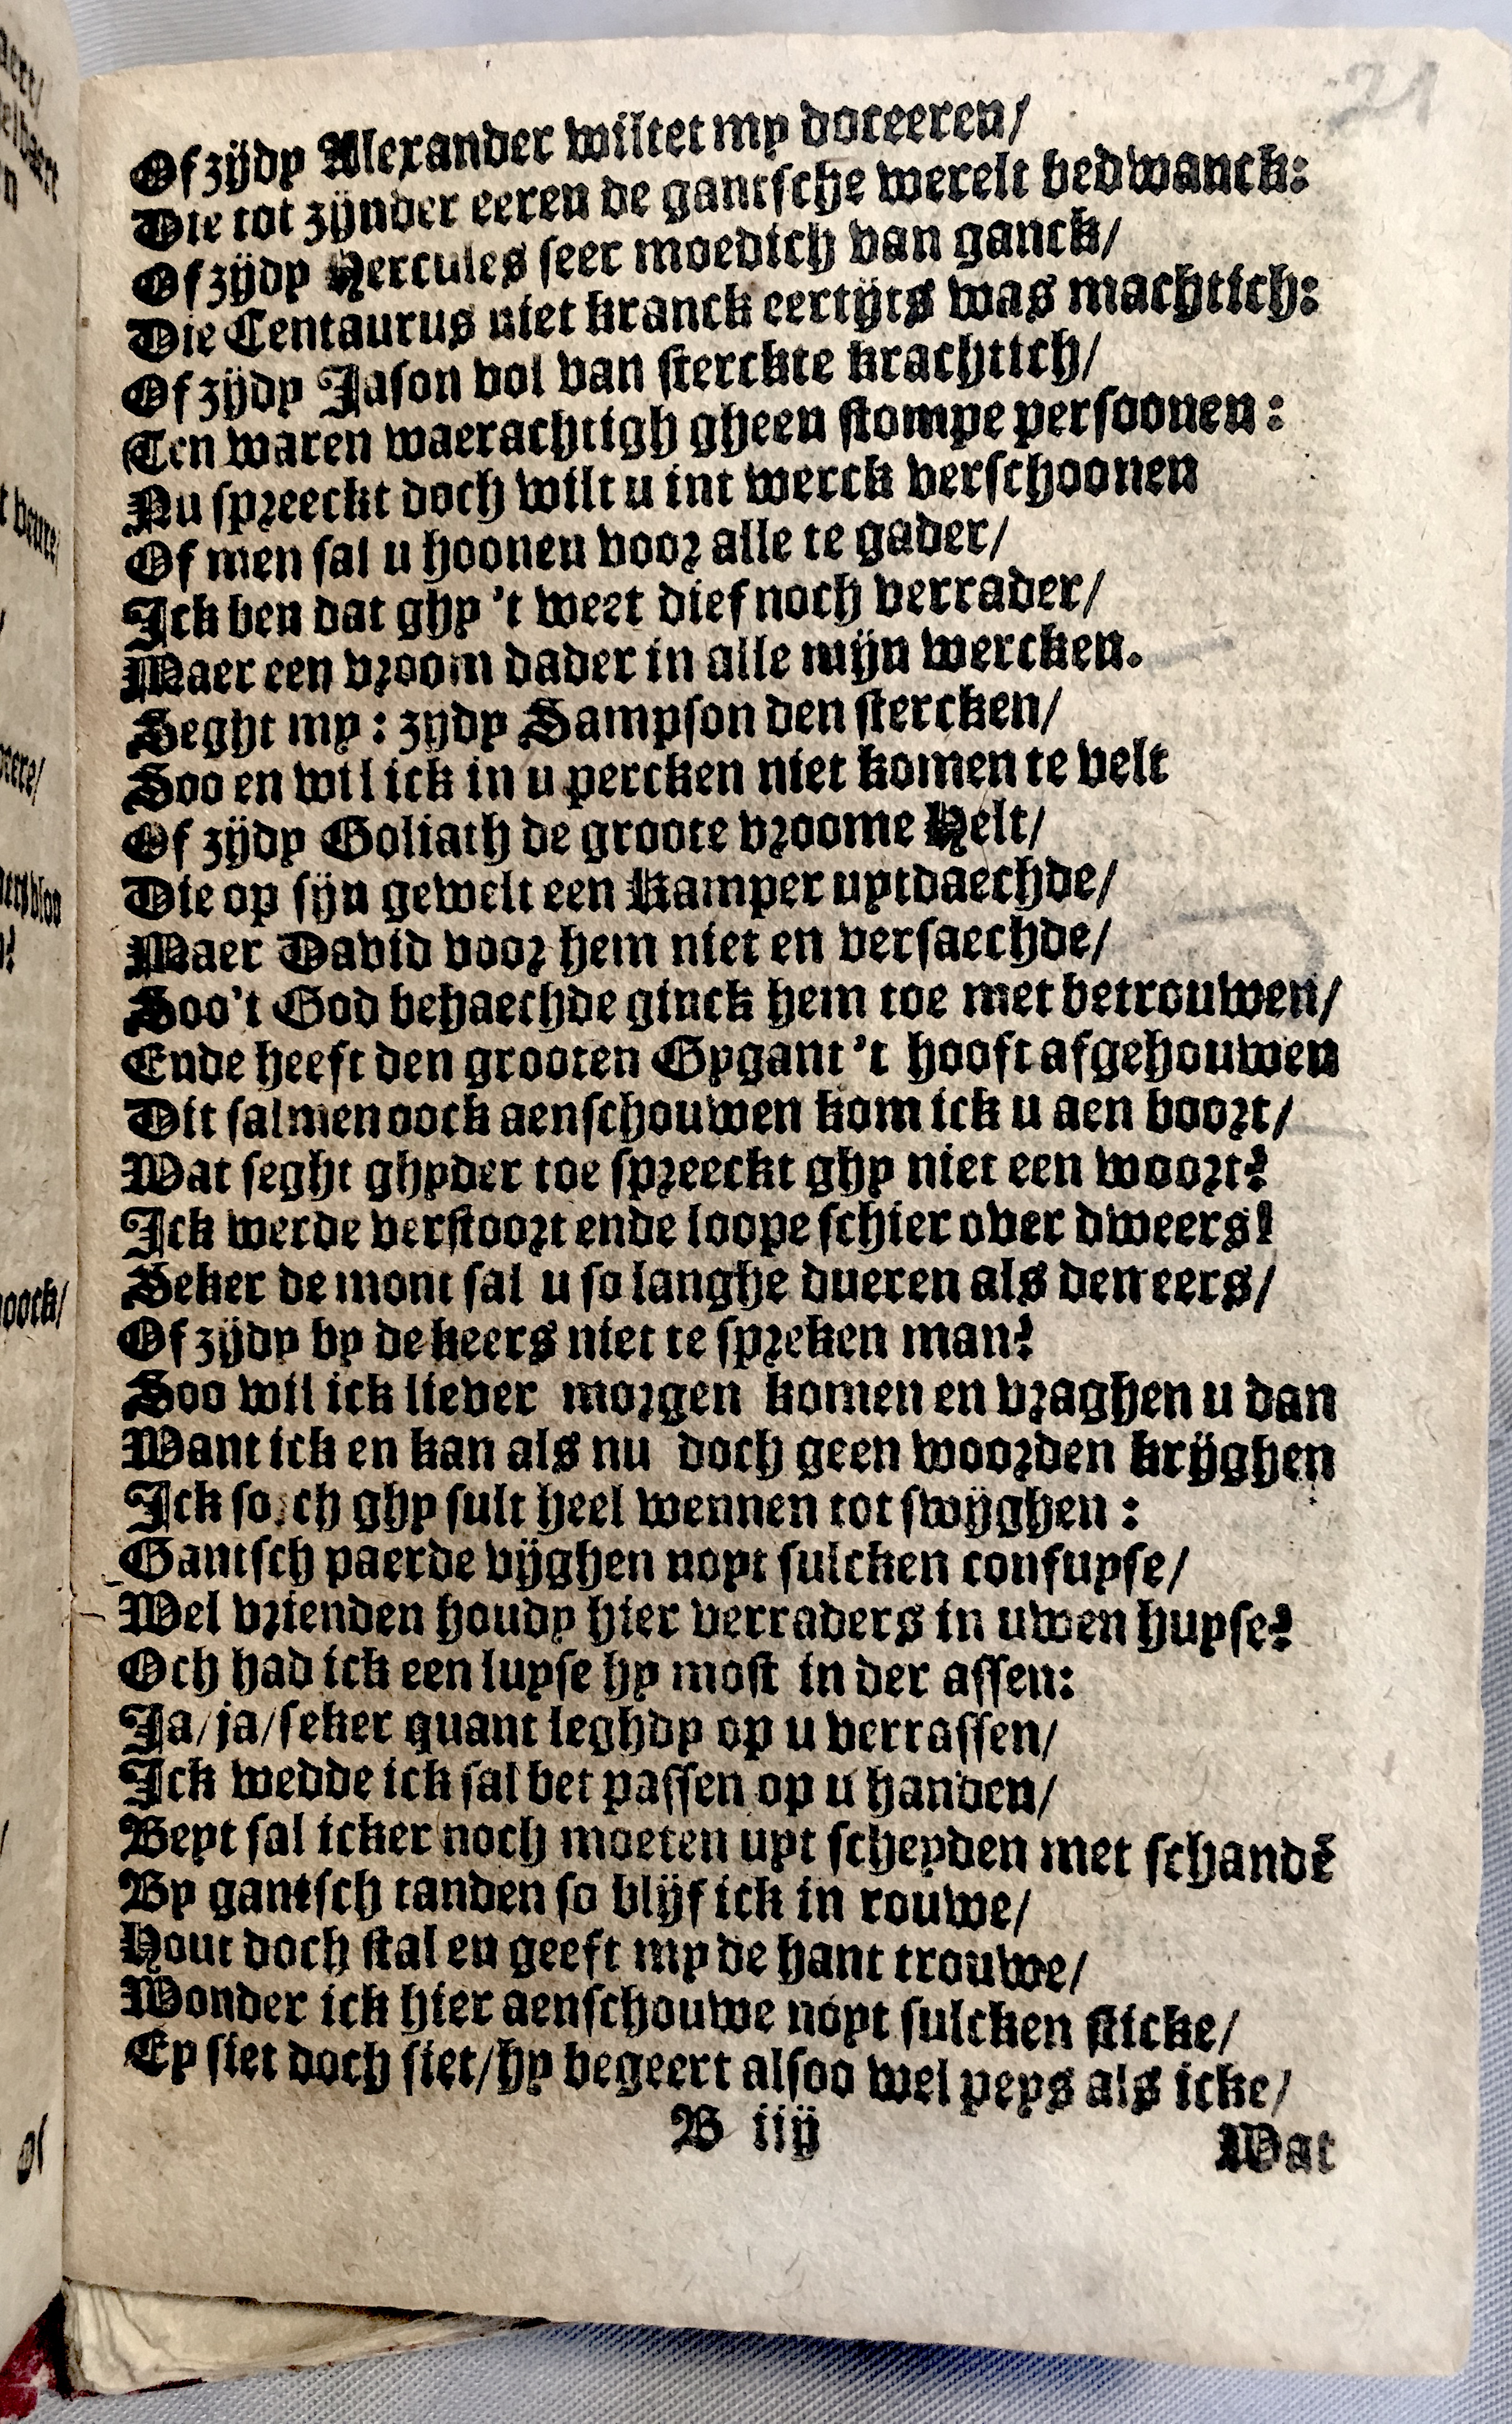 21
Of zijdy Alexander wiltet my doceeren/
Die tot zijnder eeren de gantsche werelt bedwanck:
Of zijdy Hercules seer moedich van ganck/
Die Centaurus niet kranck eertijts was machtich:
Of zijdy Jason vol van sterckte krachtich/
(Ten waren waerachtigh gheen stompe persoonen:
Nu spreeckt doch wilt u int werck verschoonen
Of men sal u hoonen voor alle te gader/
Ick ben dat ghy 't weet dief noch verrader/
Maer een vroom dader in alle mijn wercken.
Seght my: zijdy Sampson den stercken/
Soo en wil ick in u percken niet komen te velt
Of zijdy Goliath de groote vroome Helt/
Die op sijn gewelt een Kamper uytdaechde/
Maer David voor hem niet en versaechde/
Soo't God behaechde ginck hem toe met betrouwen/
Ende heeft den grooten Gygant 't hooft afgehouwen
Dit salmen oock aenschouwen kom ick u aen boort/
Wat seght ghyder toe spreeckt ghy niet een woort?
Ick werde verstoort ende loope schier over dweers!
Seker de mont sal u so langhe dueren als den eers/
Of zijdy by de keers niet te spreken man?
Soo wil ick liever morgen komen en vraghen u dan
Want ick en kan als nu doch geen woorden krijghen
Ick sorch ghy sult heel wennen tot swijghen:
Gantsch paerde vijghen noyt sulcken confuyse/
Wel vrienden houdy hier verraders in uwen huyse?
Och had ick een luyse hy most in der assen:
Ja/ja/seker quant leghdy op u verrassen/
Ick wedde ick sal bet passen op u handen/
Beyt sal icker noch moeten uyt scheyden met schandē
By gantsch tanden so blijf ick in rouwe/
Hout doch stal en geeft my de hant trouwe/
Wonder ick hier aenschouwe noyt sulcken sticke/
Ey siet doch siet/hy begeert alsoo wel peys als icke/
B iij
Wat